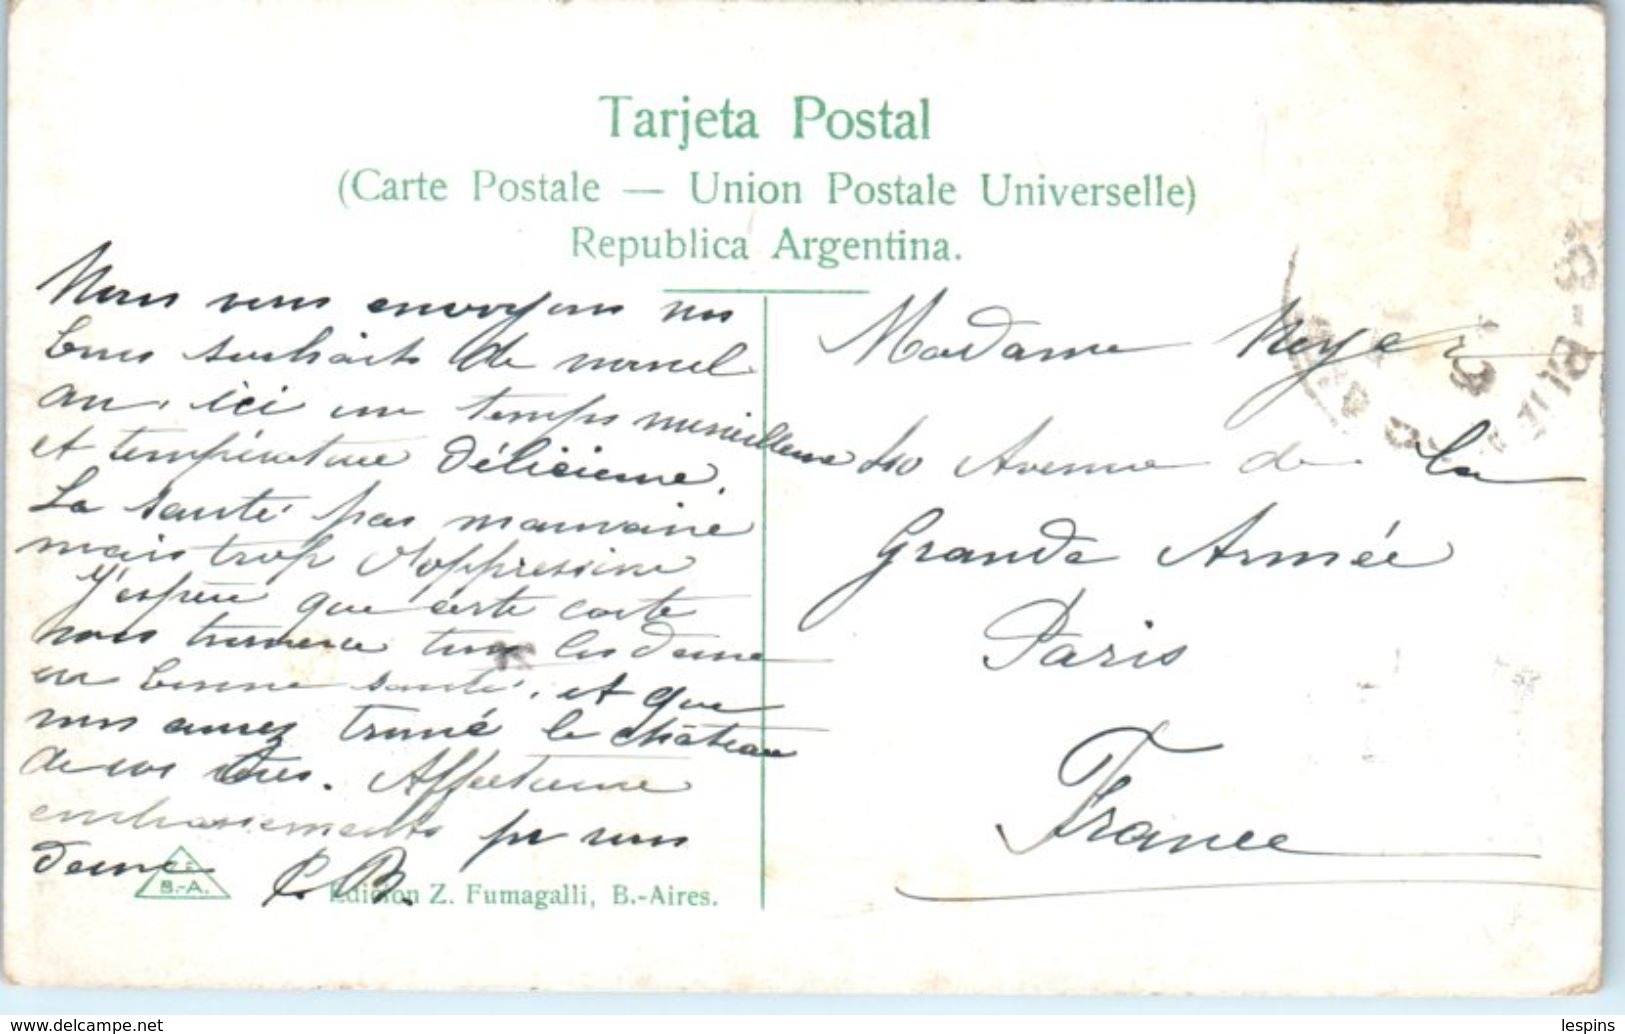 Tarjeta Postal
(Carte Postale — Union Postale Universelle)
Republica Argentina.
Nous vous envoyons nos
bons souhaits de nouvel
an, ici un temps merveilleux
et température délicieuse.
La santé pas mauvaise
mais trop
J'espère que cette carte
vous trouvera tous les deux
en bonne santé, et que
vous avez trouvé le château
de vos rêves. Affectueux
embrassements pr vous
deux C. B.
Z. F.
B.-A.
Edicion Z. Fumagalli, B.-Aires.
Madame Noyer
Avenue de la
Grande Armée
Paris
France
lespins
www.delcampe.net